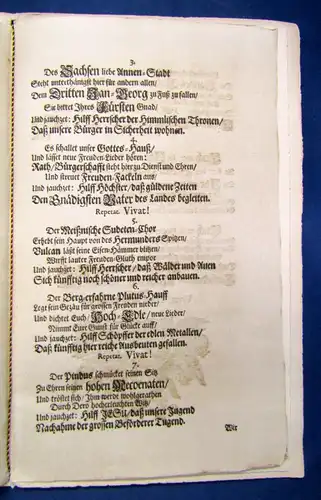 3.
Des Sachsen liebe Annen-Stadt
Steht unterthänigst hier für andern allen/
Dem Dritten Jan-Georg zu Fuß zu fallen/
Sie bittet Ihres Fürsten Gnad/
Und jauchzet: Hilff Herrscher der Himmlischen Thronen/
Daß unsere Bürger in Sicherheit wohnen.
4.
Es schallet unser Gottes-Hauß/
Und lässet neue Freuden-Lieder hören:
Rath/ Bürgerschafft steht hier zu Dienst und Ehren/
Und streuet Freuden-Fackeln aus/
Und jauchzet: Hilff Höchster/ daß güldene Zeiten
Den Gnädigsten Vater des Landes begleiten.
Repetat. Vivat!
5.
Der Meißnische Sudeten-Chor
Erhebt sein Haupt von des Hermunders Spitzen/
Vulcan läst seine Eisen-Hämmer blitzen/
Wirfft lauter Freuden-Gluth empor
Und jauchzet: Hilff Herrscher/ daß Wälder und Auen
Sich künfftig noch schöner und reicher anbauen.
6.
Der Berg-erfahrne Plutus-Hauff
Legt sein Gezäu für grossen Freuden nieder/
Und dichtet Euch/ Hoch-Edle/ neue Lieder/
Nimmt Eure Gunst für Glücke auff/
Und jauchzet: Hilff Schöpffer der edlen Metallen/
Daß künfftig hier reiche Ausbeuten gefallen.
Repetat. Vivat!
7.
Der Pindus schmücket seinen Sitz
Zu Ehren seinen hohen Mecoenaten/
Und tröstet sich/ Ihm werde wohlgerathen
Durch Dero hocherleuchten Witz/
Und jauchzet: Hilff JESU/ daß unsere Jugend
Nachahme der grossen Beförderer Tugend.
Wir